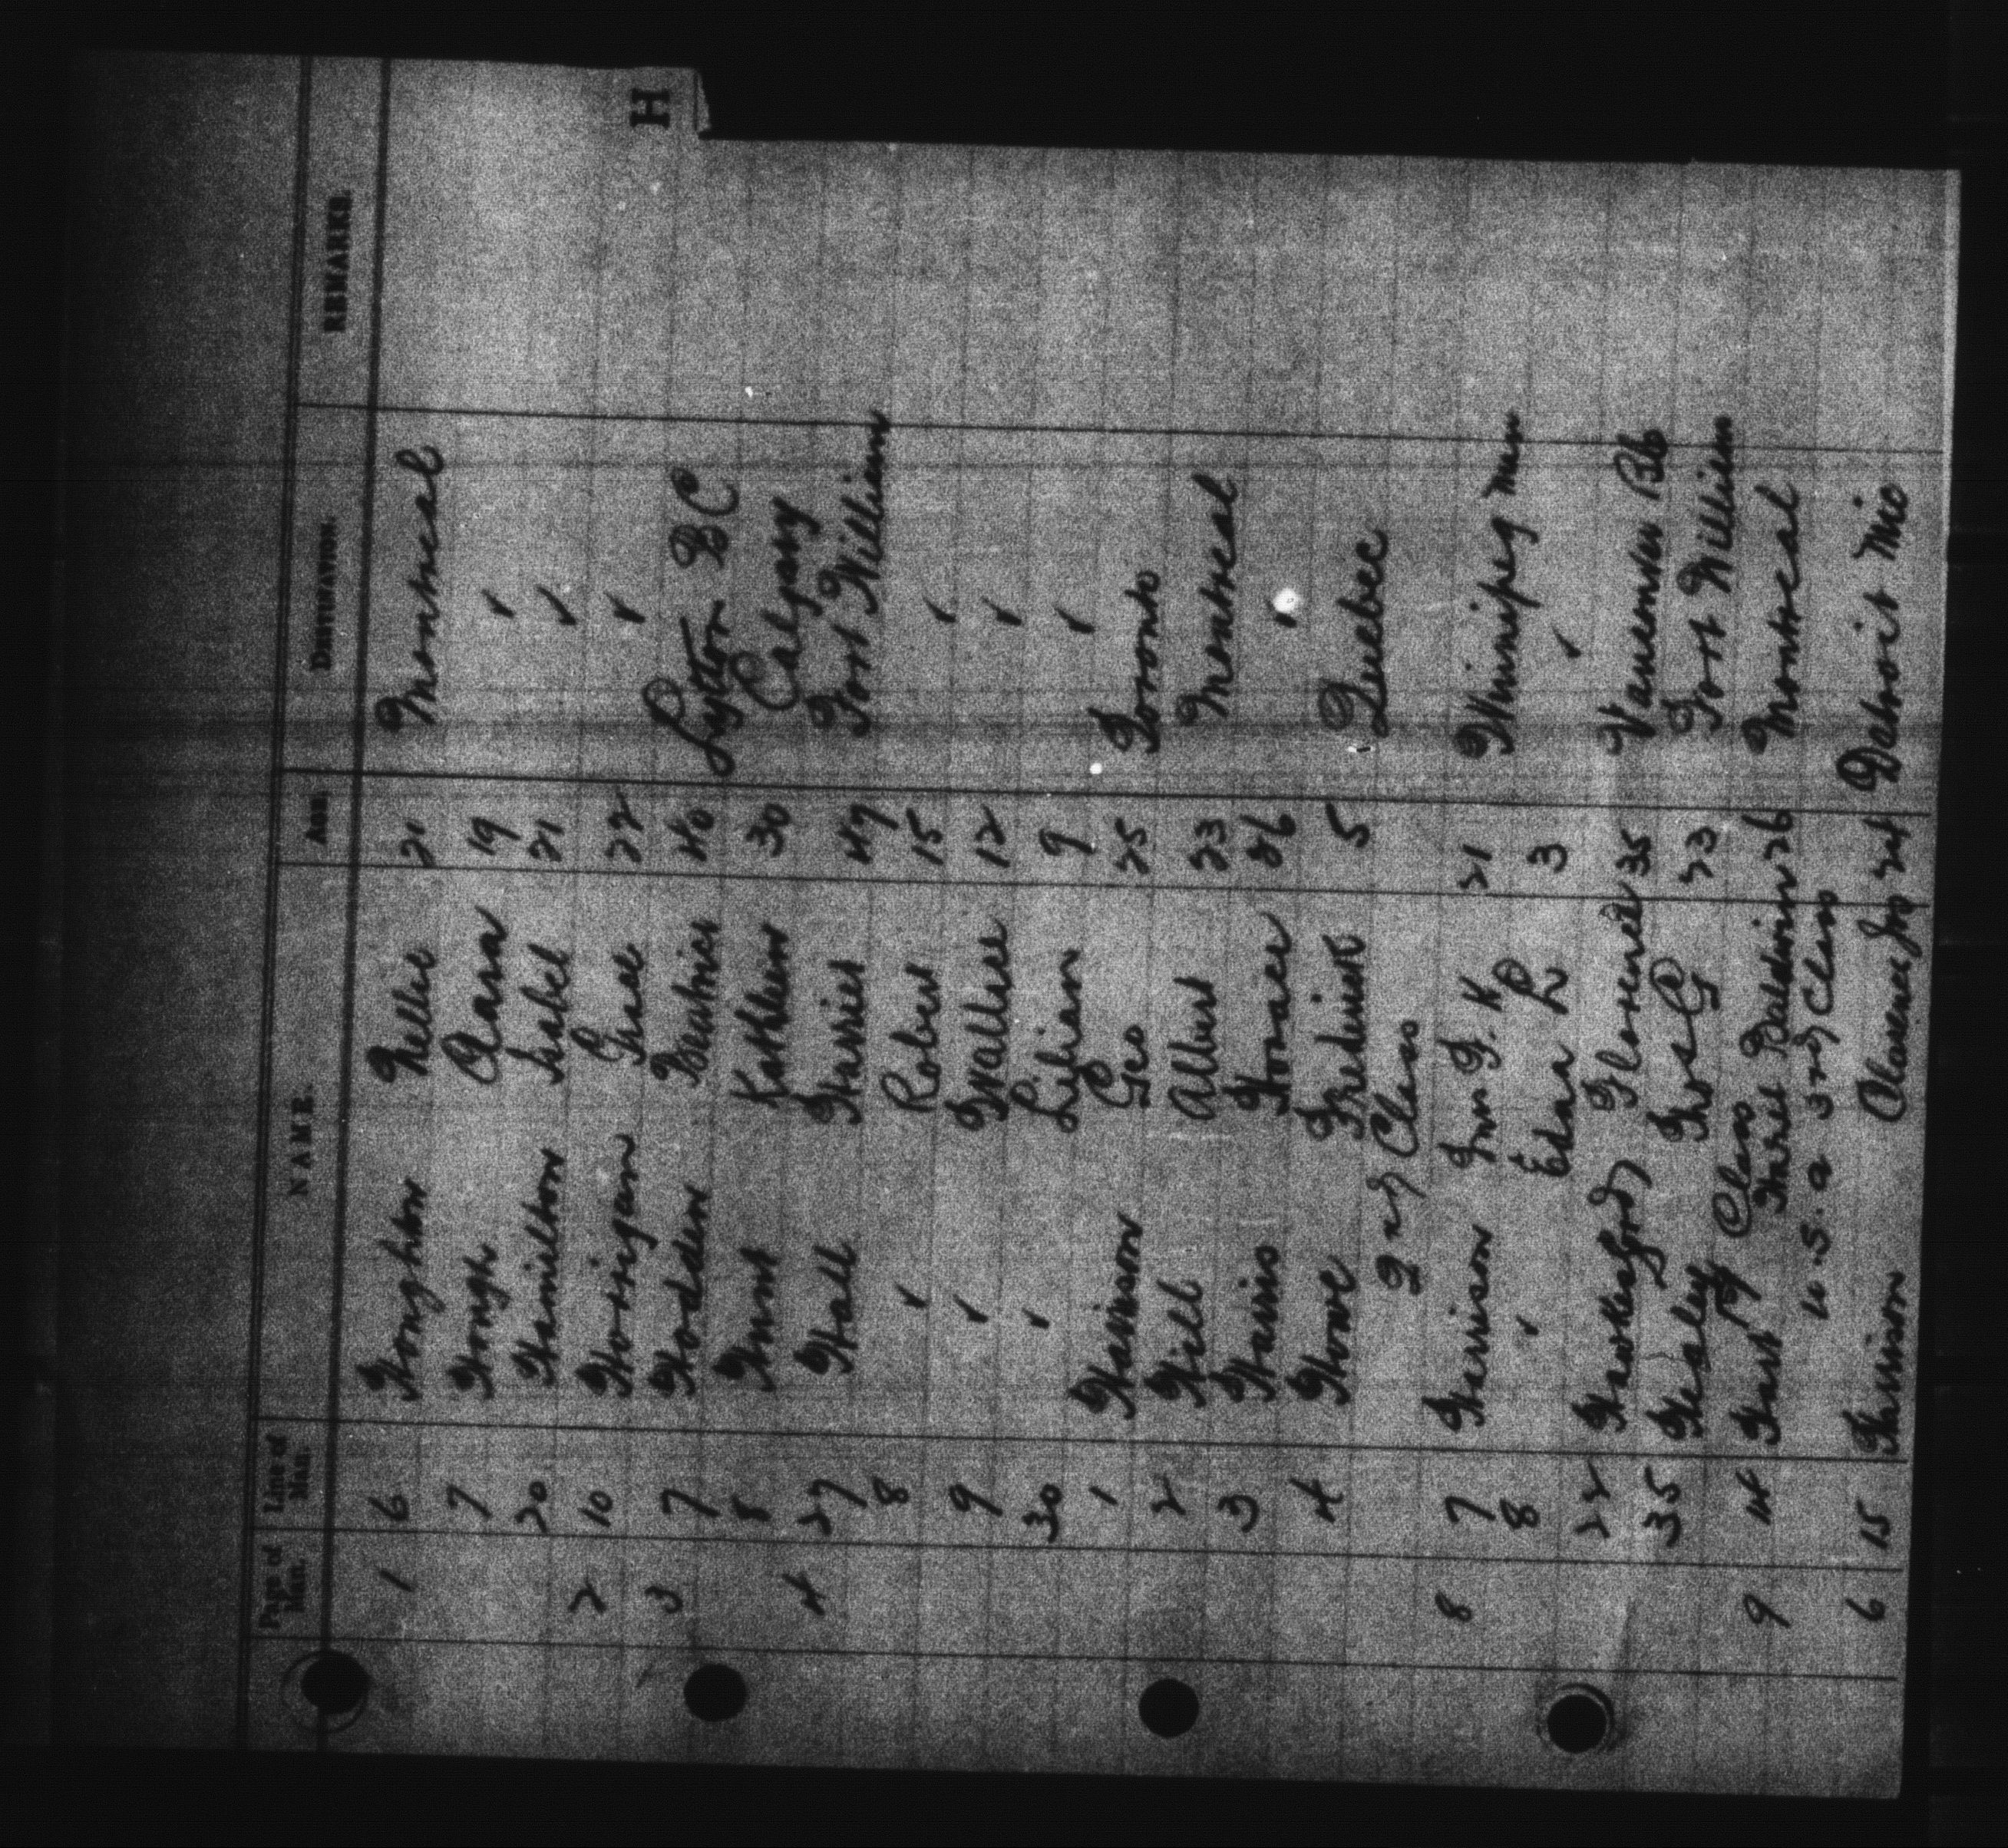 H
Page of Man. Line of Man. NAME. AGE. DESTINATION. REMARKS.
1 6 Houghton Nellie 21 Montreal
7 Hough Clara 19 ✓
20 Hamilton Isabel 21 ✓
2 10 Horrigan Grace 22 ✓
3 7 Hodden Beatrice 40 Lytton BC
8 Hunt Kathleen 30 Calgary
4 27 Hall Harriet 47 Fort William
8 ✓ Robert 15 ✓
9 ✓ Wallace 12 ✓
30 ✓ Lilian 9 ✓
1 Harrison Geo 25 Toronto
2 Hill Albert 23 Montreal
3 Harris Horace 26
4 Howe Frederick 5 Quebec
2nd Class
8 7 Herrison Wm F. K 21 Winnipeg Man
8 ✓ Edna L 3 ✓
22 Florence 35 Vancouver BC
35 Healey Thos G 23 Fort William
Class
9 14 Hart Baldwin 26 Montreal
U.S.A 3rd Class
6 15 Harrison Clarence Jno 24 Detroit Mic